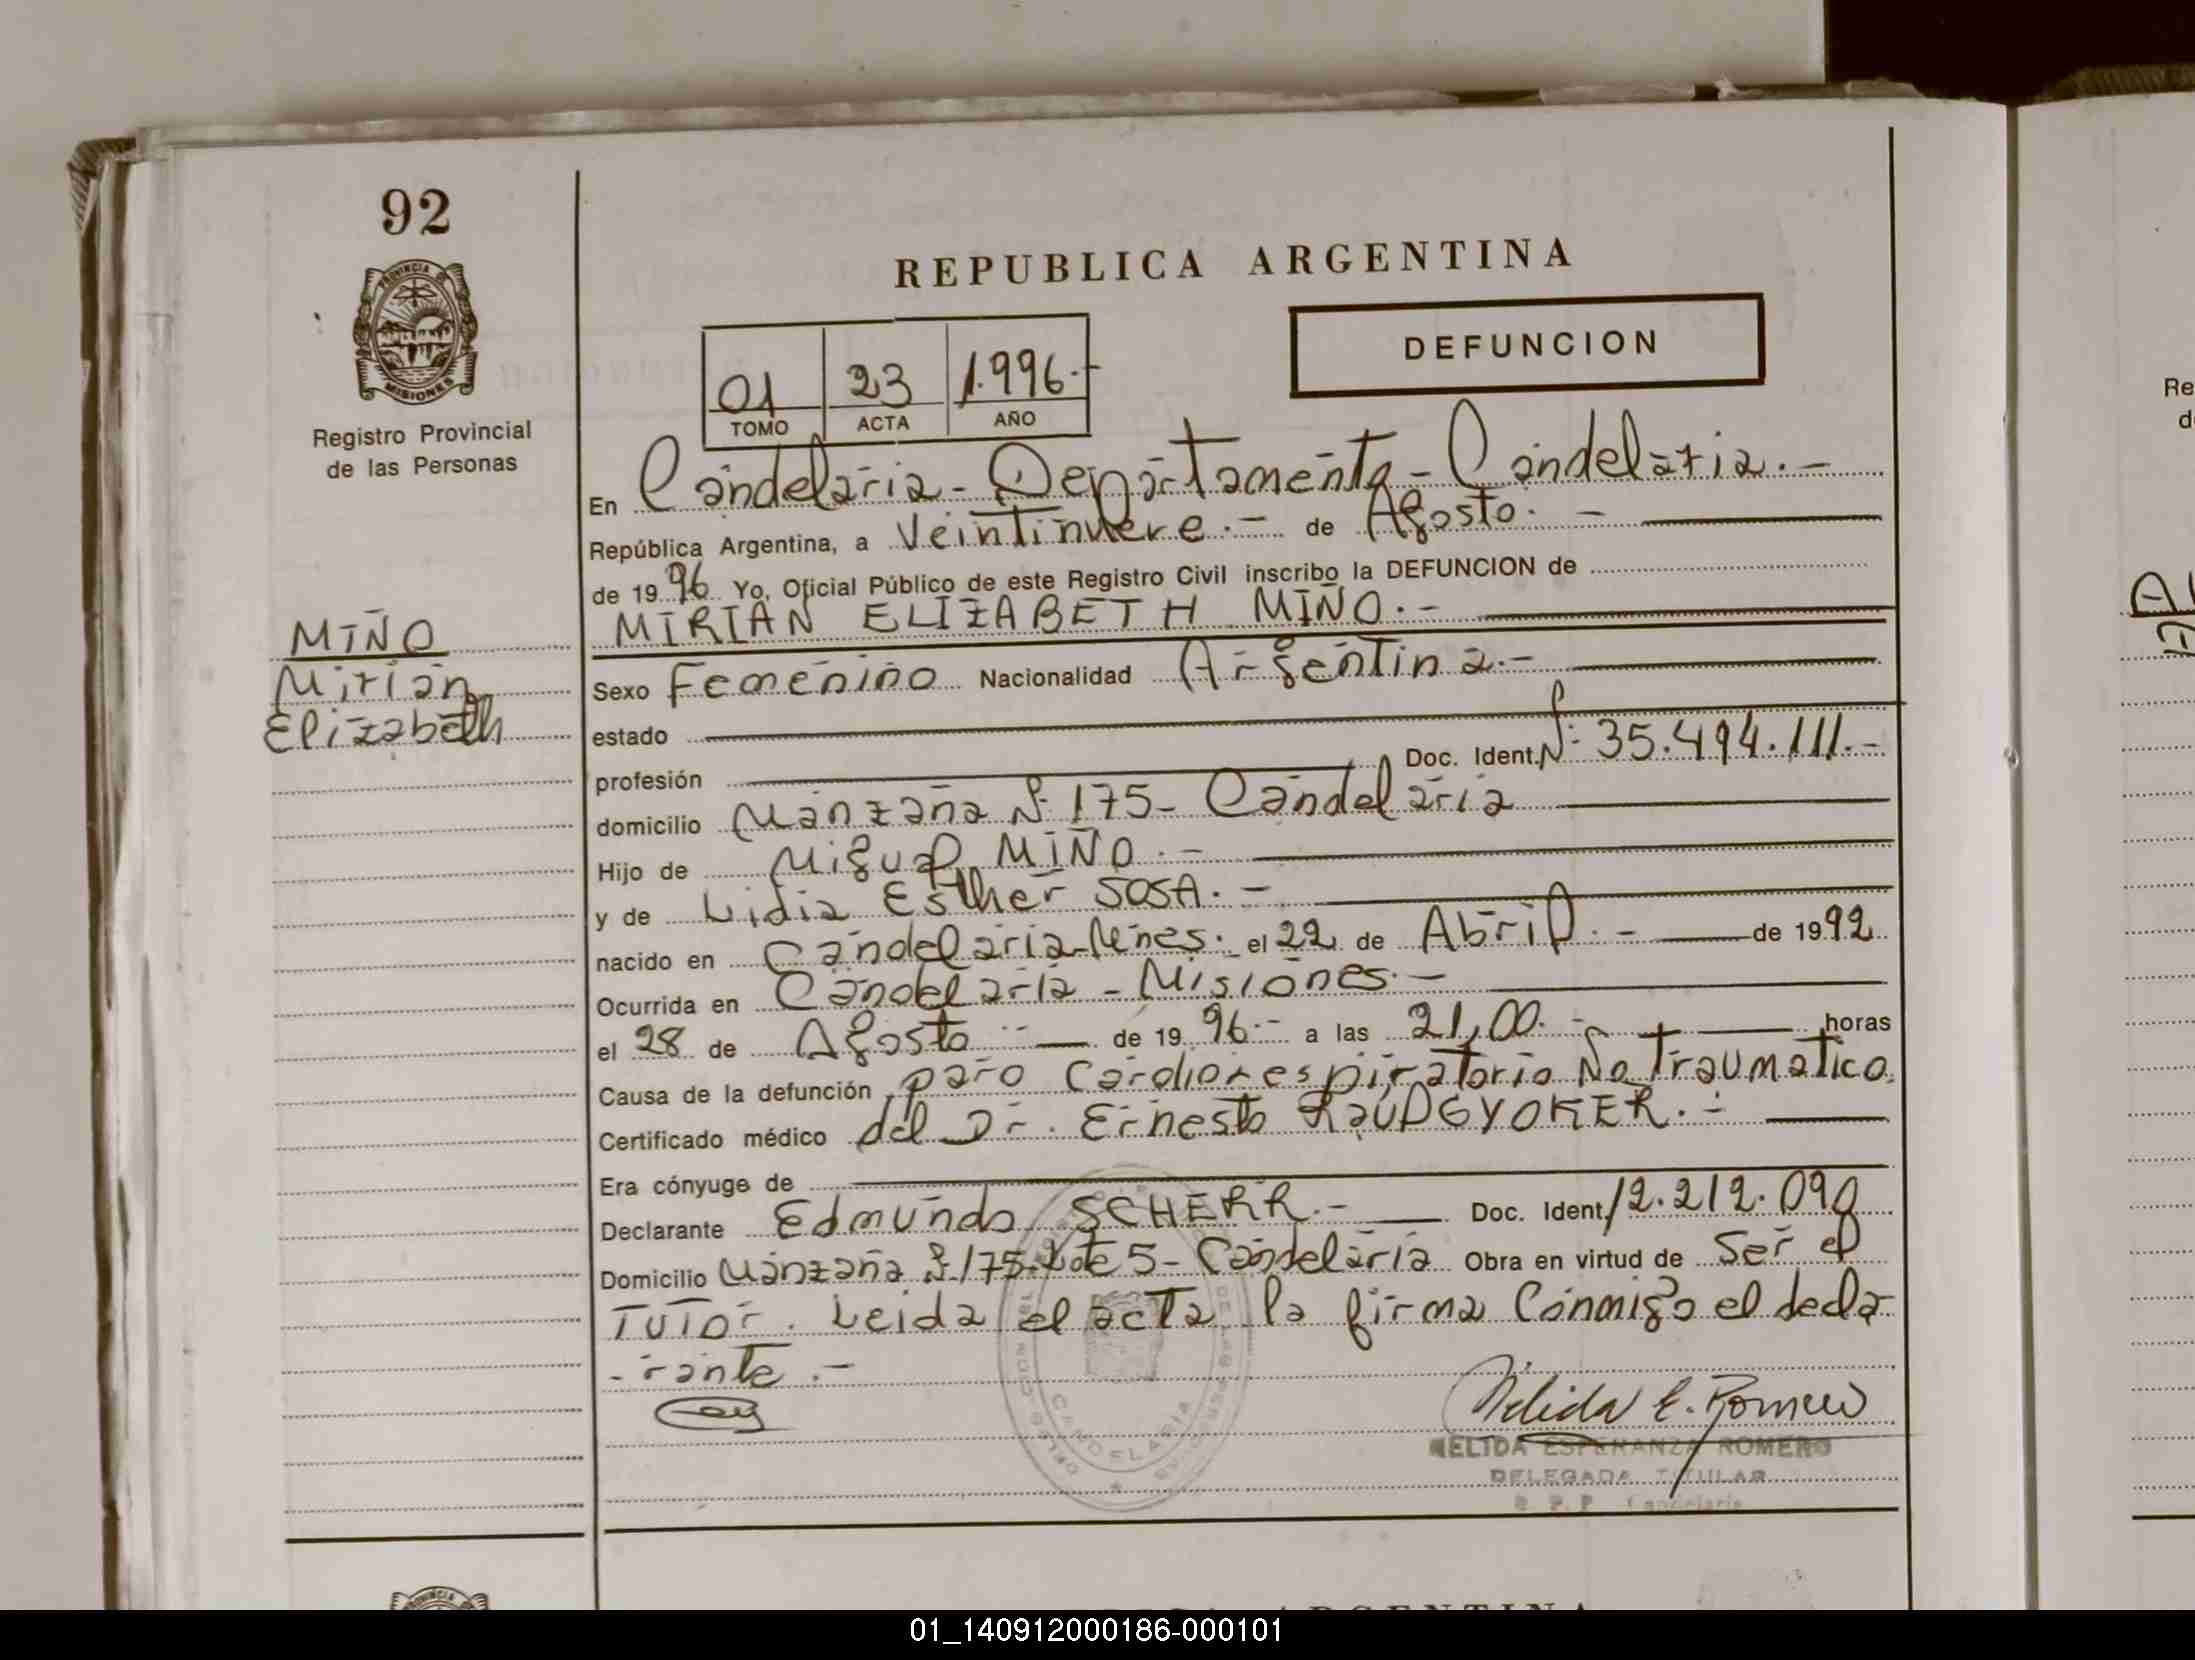 92
PROVINCIA DE
MISIONES
Registro Provincial
de las Personas
MIÑO
Mirian
Elizabeth
REPUBLICA ARGENTINA
DEFUNCION
01 23 1.996.-
TOMO ACTA AÑO
En Candelaria - Departamento - Candelaria.-
República Argentina, a Veintinueve.- de Agosto.-
de 19 96 Yo, Oficial Público de este Registro Civil inscribo la DEFUNCION de
MIRIAN ELIZABETH MIÑO.-
Sexo Femenino Nacionalidad Argentina.-
estado
profesión Doc. Ident. Nº 35.494.111.-
domicilio Manzana Nº 175- Candelaria
Hijo de Miguel MIÑO.-
y de Lidia Esther SOSA.-
nacido en Candelaria-Mnes. el 22 de Abril.- de 19 92
Ocurrida en Candelaria - Misiones.-
el 28 de Agosto.- de 19 96.- a las 21,00.- horas
Causa de la defunción paro Cardiorespiratorio No Traumatico.
Certificado médico del Dr. Ernesto RAUDGYOKER.-
Era cónyuge de
Declarante Edmundo SCHERR.- Doc. Ident. 12.212.090
Domicilio Manzana Nº 175-Lote 5- Candelaria Obra en virtud de Ser el
Tutor. Leida el acta la firma Conmigo el decla-
-rante.-
Nelida E. Romero
NELIDA ESPERANZA ROMERO
DELEGADA TITULAR
R. P. P. Candelaria
CANDELARIA
Re
d
ARGENTINA
01_140912000186-000101